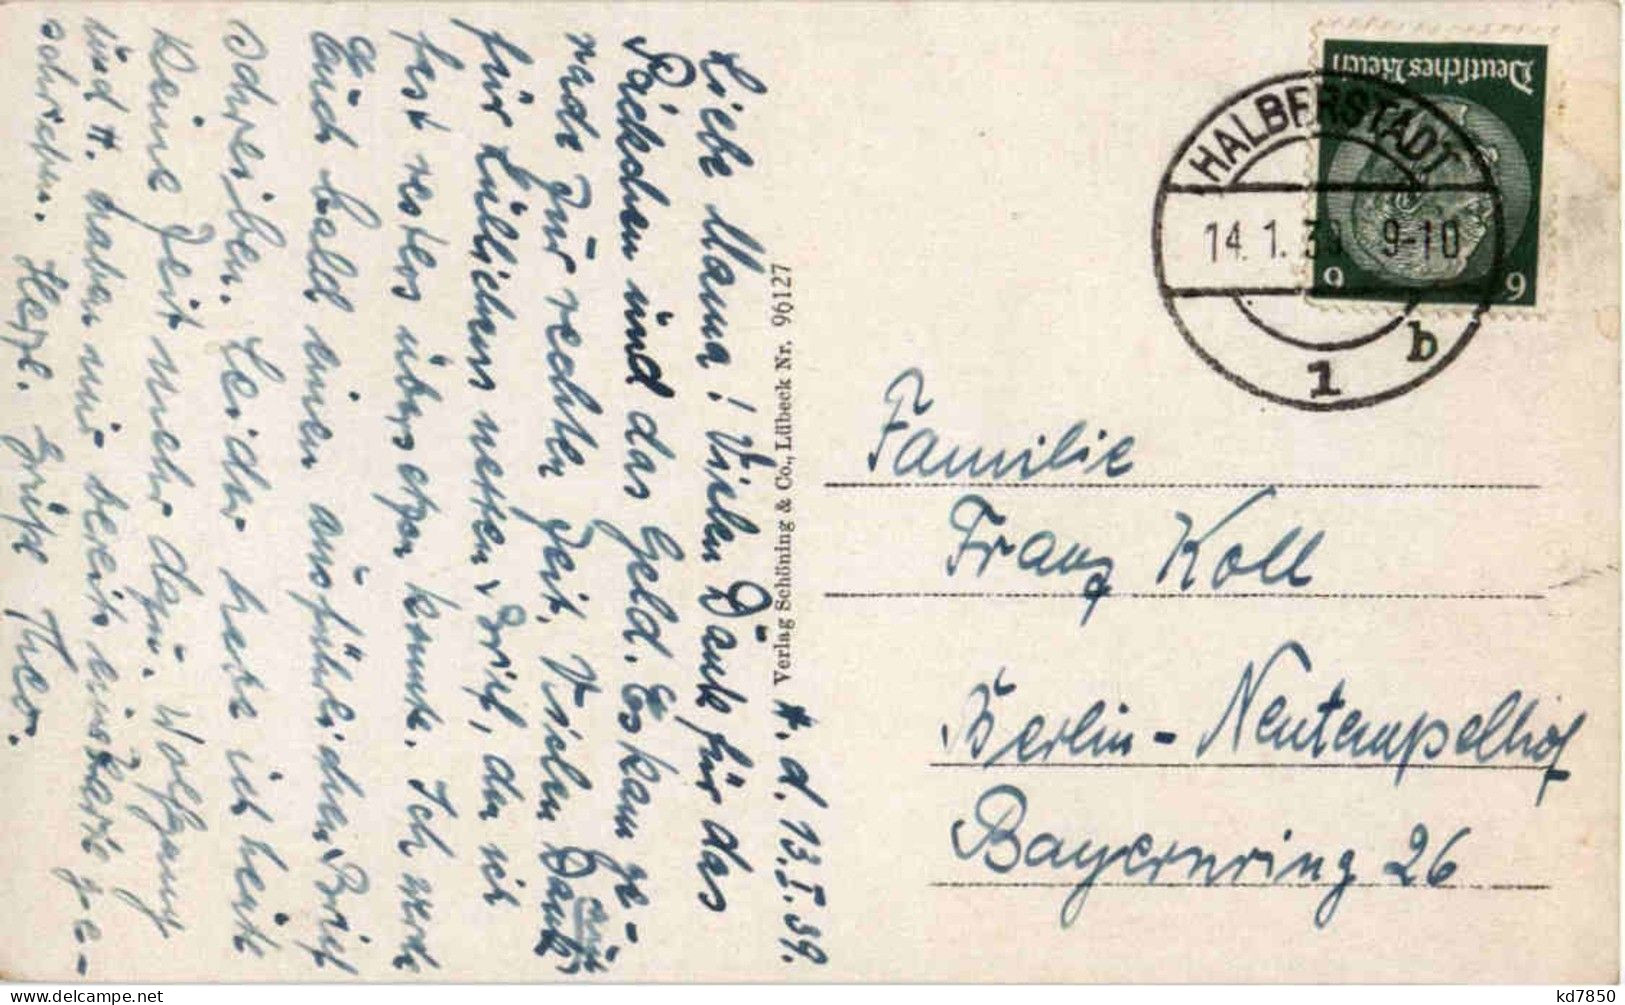 H. d. 13.I.39.
Liebe Mama! Vielen Dank für das
Päckchen und das Geld. Es kam ge-
rade zur rechten Zeit. Vielen Dank auch
für Lullichens netten Brief, den ich
fast restlos übersetzen konnte. Ich werde
Euch bald einen ausführlichen Brief
schreiben. Leider habe ich heute
keine Zeit mehr dazu. Wolfgang
und H. haben mir bereits eine Karte ge-
schrieben. Herzl. Grüße Theo.
Verlag Schöning & Co., Lübeck Nr. 96127
Deutsches Reich
9 9
HALBERSTADT
14. 1. 39 9-10
1 b
Familie
Franz Koll
Berlin - Neutempelhof
Bayernring 26
kd7850